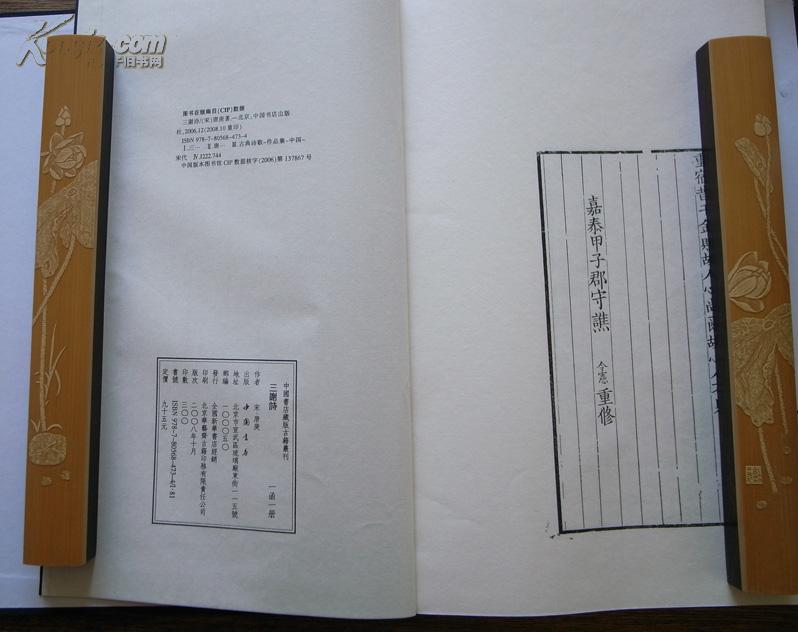 Kongfz.com
孔夫子旧书网
图书在版编目(CIP)数据
三谢诗/(宋)唐庚著.—北京:中国书店出版
社,2006.12(2008.10重印)
ISBN 978-7-80568-473-4
Ⅰ.三… Ⅱ.唐… Ⅲ.古典诗歌-作品集-中国-
宋代 Ⅳ.I222.744
中国版本图书馆CIP数据核字(2006)第137867号
中國書店藏版古籍叢刊
三謝詩 一函一册
作者 宋·唐庚
出版 中國書店
地址 北京市宣武區琉璃廠東街一一五號
郵編 一〇〇〇五〇
發行 全國新華書店經銷
印刷 北京華藝齋古籍印務有限責任公司
版次 二〇〇八年十月
印數 三〇〇
書號 ISBN 978-7-80568-473-4/I·81
定價 九十五元
嘉泰甲子郡守譙令憲重修